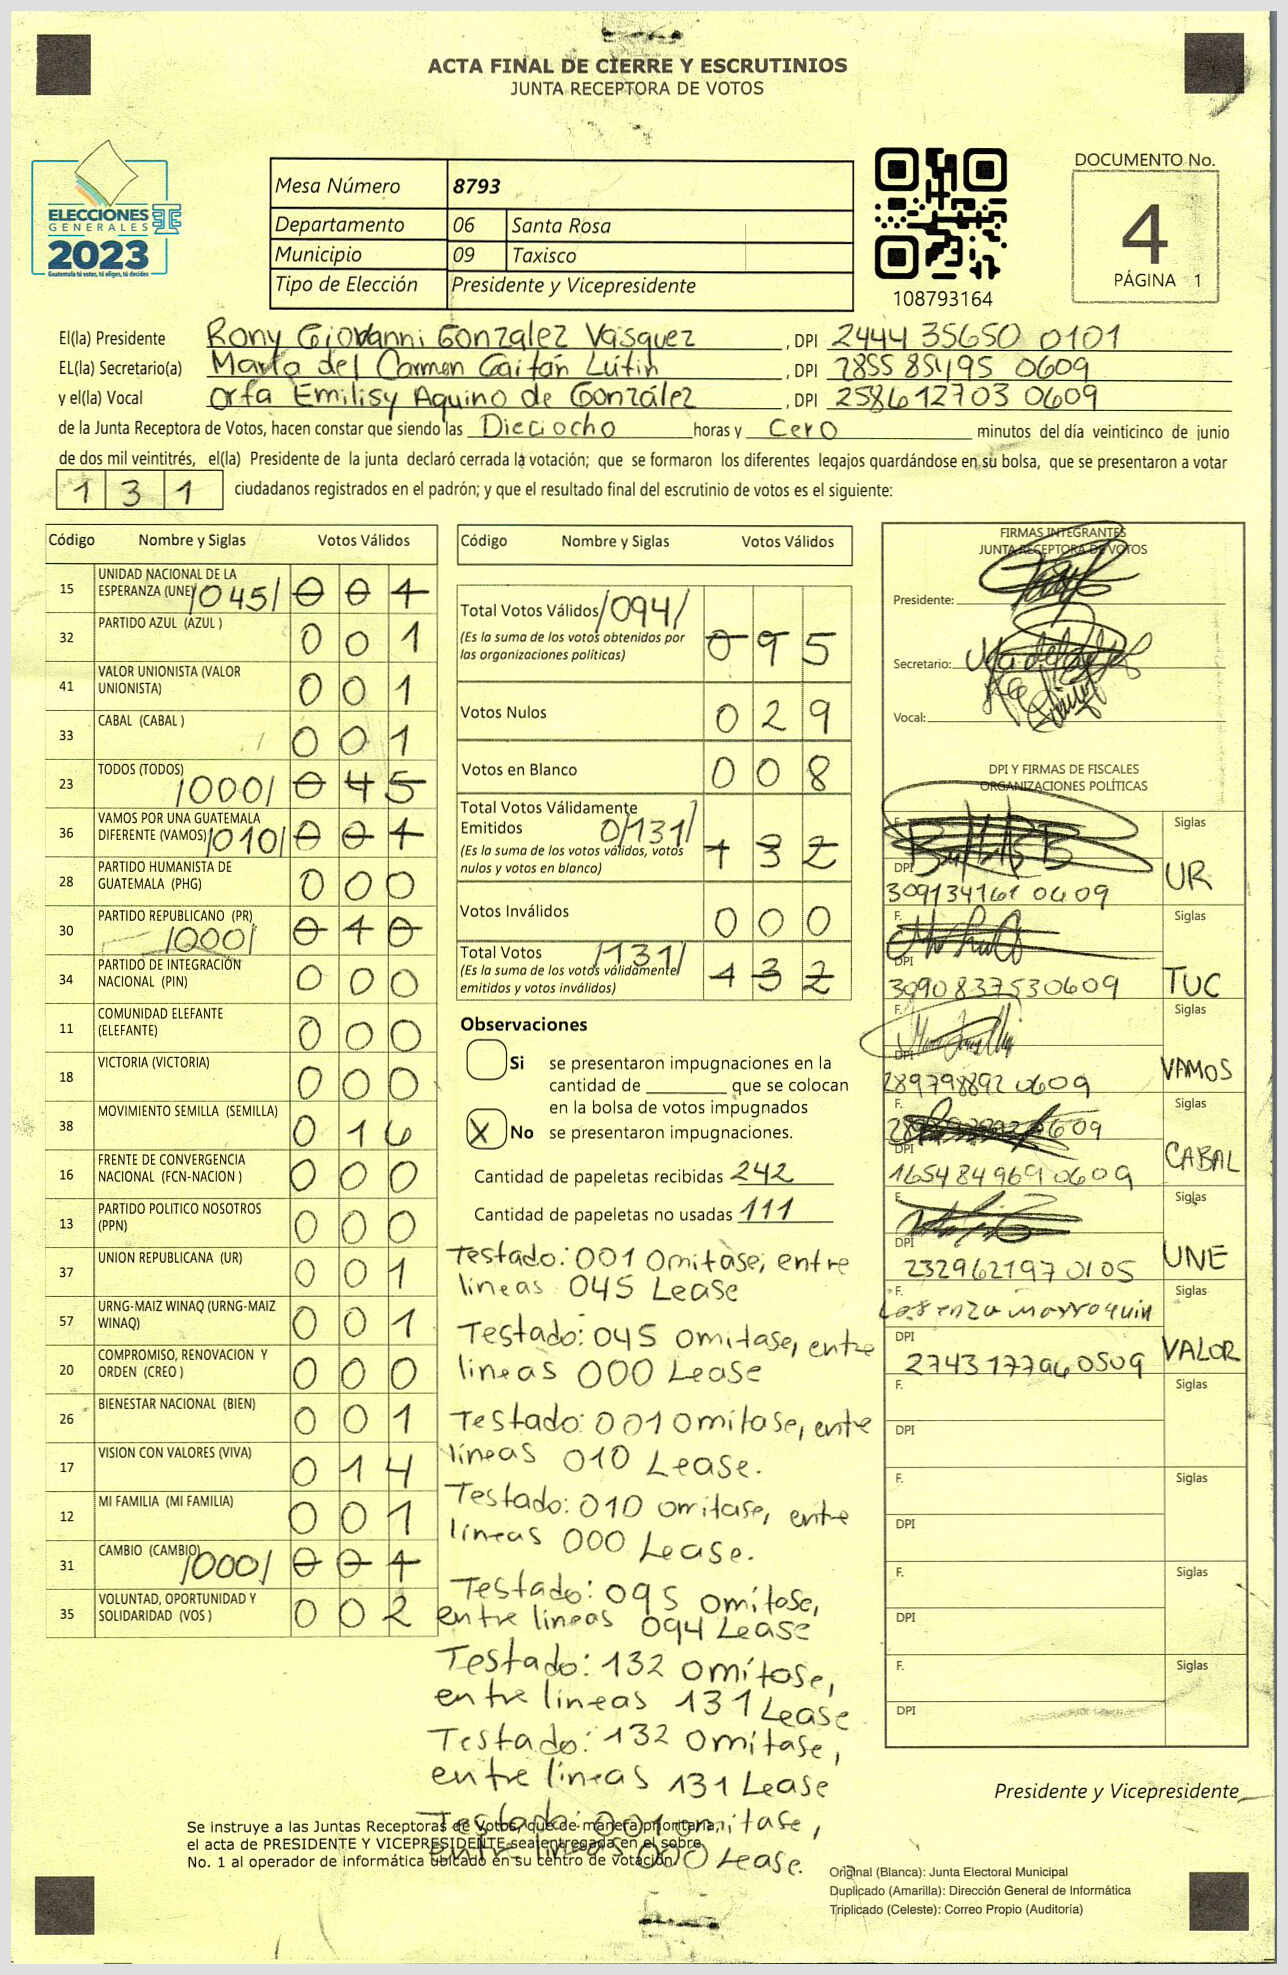 ACTA FINAL DE CIERRE Y ESCRUTINIOS
JUNTA RECEPTORA DE VOTOS
ELECCIONES
GENERALES
2023
Guatemala tú votas, tú eliges, tú decides
Mesa Número 8793
Departamento 06 Santa Rosa
Municipio 09 Taxisco
Tipo de Elección Presidente y Vicepresidente
108793164
DOCUMENTO No.
4
PÁGINA 1
El(la) Presidente Rony Giovanni Gonzalez Vasquez, DPI 2444 35650 0101
EL(la) Secretario(a) María del Carmen Gaitán Lútin, DPI 2855 85495 0609
y el(la) Vocal Orfa Emilisy Aquino de González, DPI 2586127030609
de la Junta Receptora de Votos, hacen constar que siendo las Dieciocho horas y Cero minutos del día veinticinco de junio
de dos mil veintitrés, el(la) Presidente de la junta declaró cerrada la votación; que se formaron los diferentes legajos guardándose en su bolsa, que se presentaron a votar
131 ciudadanos registrados en el padrón; y que el resultado final del escrutinio de votos es el siguiente:
Código Nombre y Siglas Votos Válidos
15 UNIDAD NACIONAL DE LA
ESPERANZA (UNE) /045/ 001
32 PARTIDO AZUL (AZUL ) 001
41 VALOR UNIONISTA (VALOR
UNIONISTA) 001
33 CABAL (CABAL ) 001
23 TODOS (TODOS) /000/ 045
36 VAMOS POR UNA GUATEMALA
DIFERENTE (VAMOS) /010/ 001
28 PARTIDO HUMANISTA DE
GUATEMALA (PHG) 000
30 PARTIDO REPUBLICANO (PR) /000/ 010
34 PARTIDO DE INTEGRACIÓN
NACIONAL (PIN) 000
11 COMUNIDAD ELEFANTE
(ELEFANTE) 000
18 VICTORIA (VICTORIA) 000
38 MOVIMIENTO SEMILLA (SEMILLA) 016
16 FRENTE DE CONVERGENCIA
NACIONAL (FCN-NACION ) 000
13 PARTIDO POLITICO NOSOTROS
(PPN) 000
37 UNION REPUBLICANA (UR) 001
57 URNG-MAIZ WINAQ (URNG-MAIZ
WINAQ) 001
20 COMPROMISO, RENOVACION Y
ORDEN (CREO ) 000
26 BIENESTAR NACIONAL (BIEN) 001
17 VISION CON VALORES (VIVA) 014
12 MI FAMILIA (MI FAMILIA) 001
31 CAMBIO (CAMBIO) /000/ 001
35 VOLUNTAD, OPORTUNIDAD Y
SOLIDARIDAD (VOS ) 002
Código Nombre y Siglas Votos Válidos
Total Votos Válidos /094/ 095
(Es la suma de los votos obtenidos por
las organizaciones políticas)
Votos Nulos 029
Votos en Blanco 008
Total Votos Válidamente
Emitidos 0/131/ 132
(Es la suma de los votos válidos, votos
nulos y votos en blanco)
Votos Inválidos 000
Total Votos /131/ 132
(Es la suma de los votos válidamente
emitidos y votos inválidos)
Observaciones
Si se presentaron impugnaciones en la
cantidad de ________ que se colocan
en la bolsa de votos impugnados
X No se presentaron impugnaciones.
Cantidad de papeletas recibidas 242
Cantidad de papeletas no usadas 111
Testado: 001 Omitase, entre
lineas 045 Lease
Testado: 045 omitase, entre
lineas 000 Lease
Testado: 001 Omitase, entre
lineas 010 Lease.
Testado: 010 omitase, entre
lineas 000 Lease.
Testado: 095 omitase,
entre lineas 094 Lease
Testado: 132 omitase,
entre lineas 131 Lease
Testado: 132 Omitase,
entre lineas 131 Lease
Testado: 001 omitase,
entre lineas 000 Lease.
FIRMAS INTEGRANTES
JUNTA RECEPTORA DE VOTOS
Presidente:
Secretario:
Vocal:
DPI Y FIRMAS DE FISCALES
ORGANIZACIONES POLÍTICAS
F. Siglas
DPI 309134161 0609 UR
F. Siglas
DPI 3090837530609 TUC
F. Siglas
DPI 289798892 0609 VAMOS
F. Siglas
DPI 1654849690609 CABAL
F. Siglas
DPI 2329621970105 UNE
F. Lorenza marroquin Siglas
DPI 2743177960509 VALOR
F. Siglas
DPI
F. Siglas
DPI
F. Siglas
DPI
F. Siglas
DPI
Presidente y Vicepresidente
Se instruye a las Juntas Receptoras de Votos, que de manera prioritaria,
el acta de PRESIDENTE Y VICEPRESIDENTE sea entregada en el sobre
No. 1 al operador de informática ubicado en su centro de votación
Original (Blanca): Junta Electoral Municipal
Duplicado (Amarilla): Dirección General de Informática
Triplicado (Celeste): Correo Propio (Auditoría)